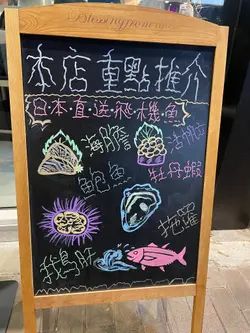 Blessing from
本店重點推介
日·本·直·送·飛·機·魚
海膽
活帆立
鮑魚
牡丹蝦
池魚
鵝肝